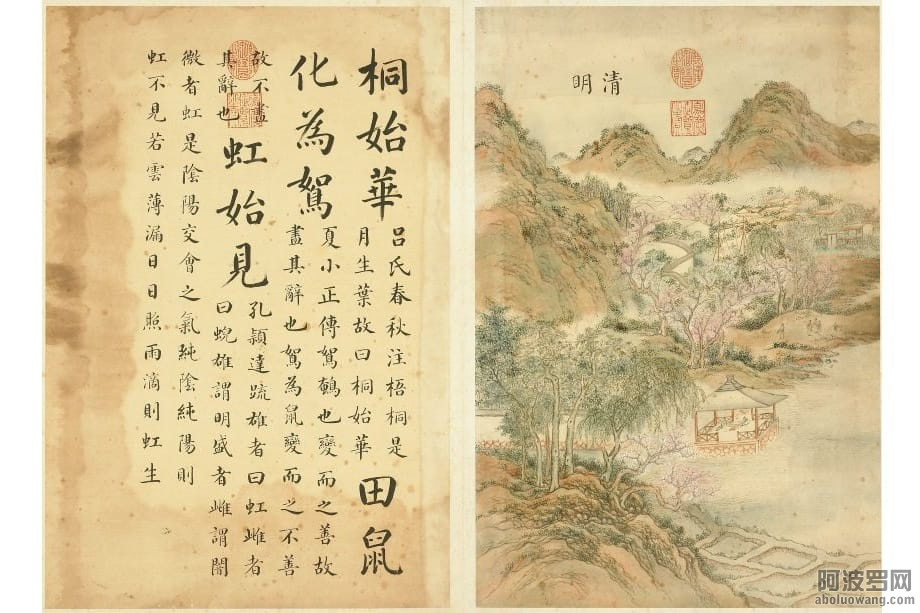 清明
桐始華
呂氏春秋注梧桐是
月生葉故曰桐始華
田鼠
化為鴽
夏小正傳鴽鵪也變而之善故
盡其辭也鴽為鼠變而之不善
故不盡
其辭也
虹始見
孔穎達疏雄者曰虹雌者
曰蜺雄謂明盛者雌謂闇
微者虹是陰陽交會之氣純陰純陽則
虹不見若雲薄漏日日照雨滴則虹生
阿波罗网
aboluowang.com